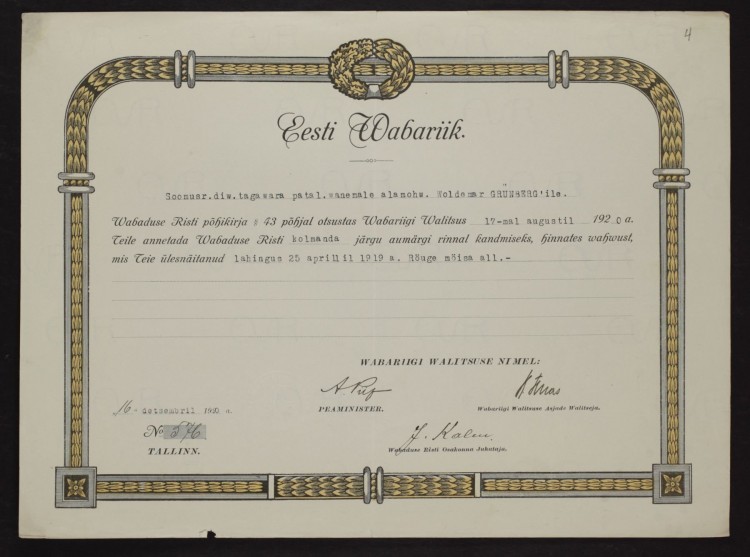 4
Eesti Wabariik.
Soomusr.diw.tagawara patal.wanemale alamohw. Woldemar GRÜNBERG'ile.
Wabaduse Risti põhikirja § 43 põhjal otsustas Wabariigi Walitsus 17-mal augustil 1920 a.
Teile annetada Wabaduse Risti kolmanda järgu aumärgi rinnal kandmiseks, hinnates wahwust,
mis Teie ülesnäitanud lahingus 25 aprillil 1919 a. Rõuge mõisa all.-
WABARIIGI WALITSUSE NIMEL:
A. Piip
PEAMINISTER.
Wabariigi Walitsuse Asjade Walitseja.
16 - detsembril 1920 a.
No 576
TALLINN.
J. Kalm
Wabaduse Risti Osakonna Juhataja.